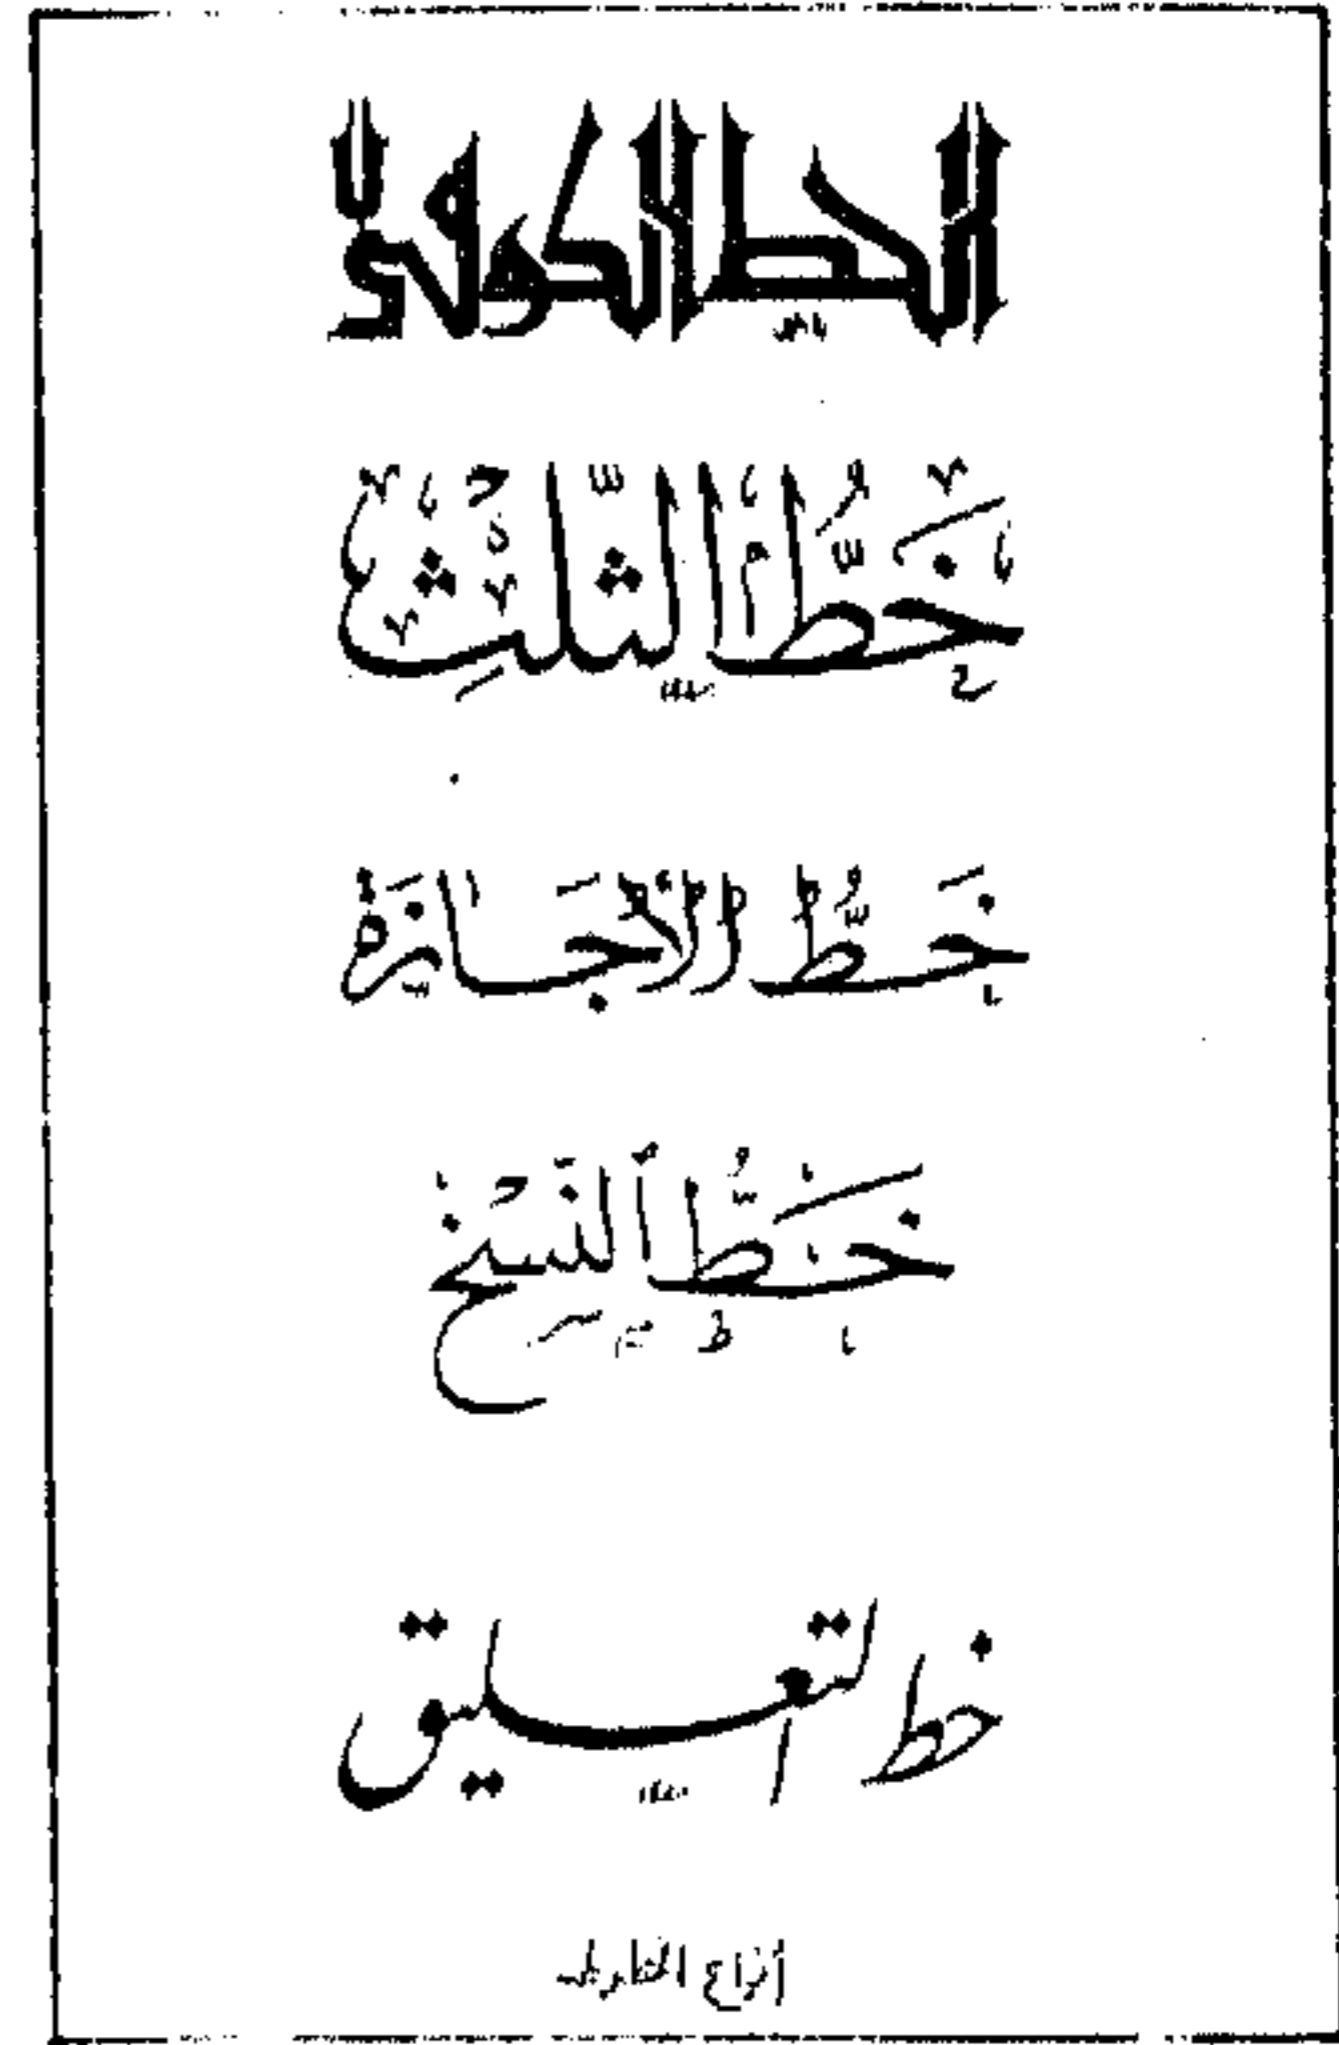 الخط الكوفي
خَطُّ الثُّلُثِ
خَطُّ الْإِجَازَة
خَطُّ النَّسْخِ
خط التعليق
أنواع